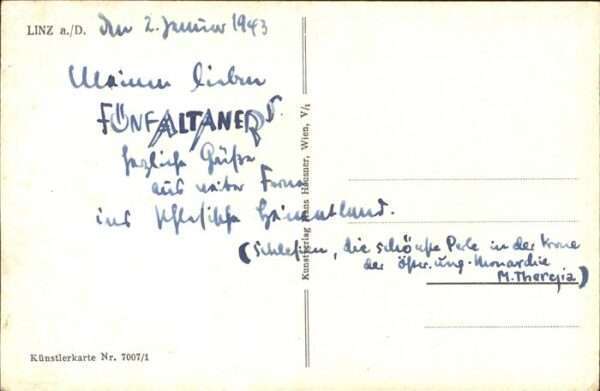 LINZ a./D. den 2. Januar 1943
Meinem lieben
FÜNFALTANER
herzliche Grüße
aus weiter Ferne
ins schlesische Heimatland.
(Schlesien, die schönste Perle in der Krone
der öster.ung. Monarchie
M. Theresia)
Kunstverlag Hans Hausner, Wien, V/1
Künstlerkarte Nr. 7007/1